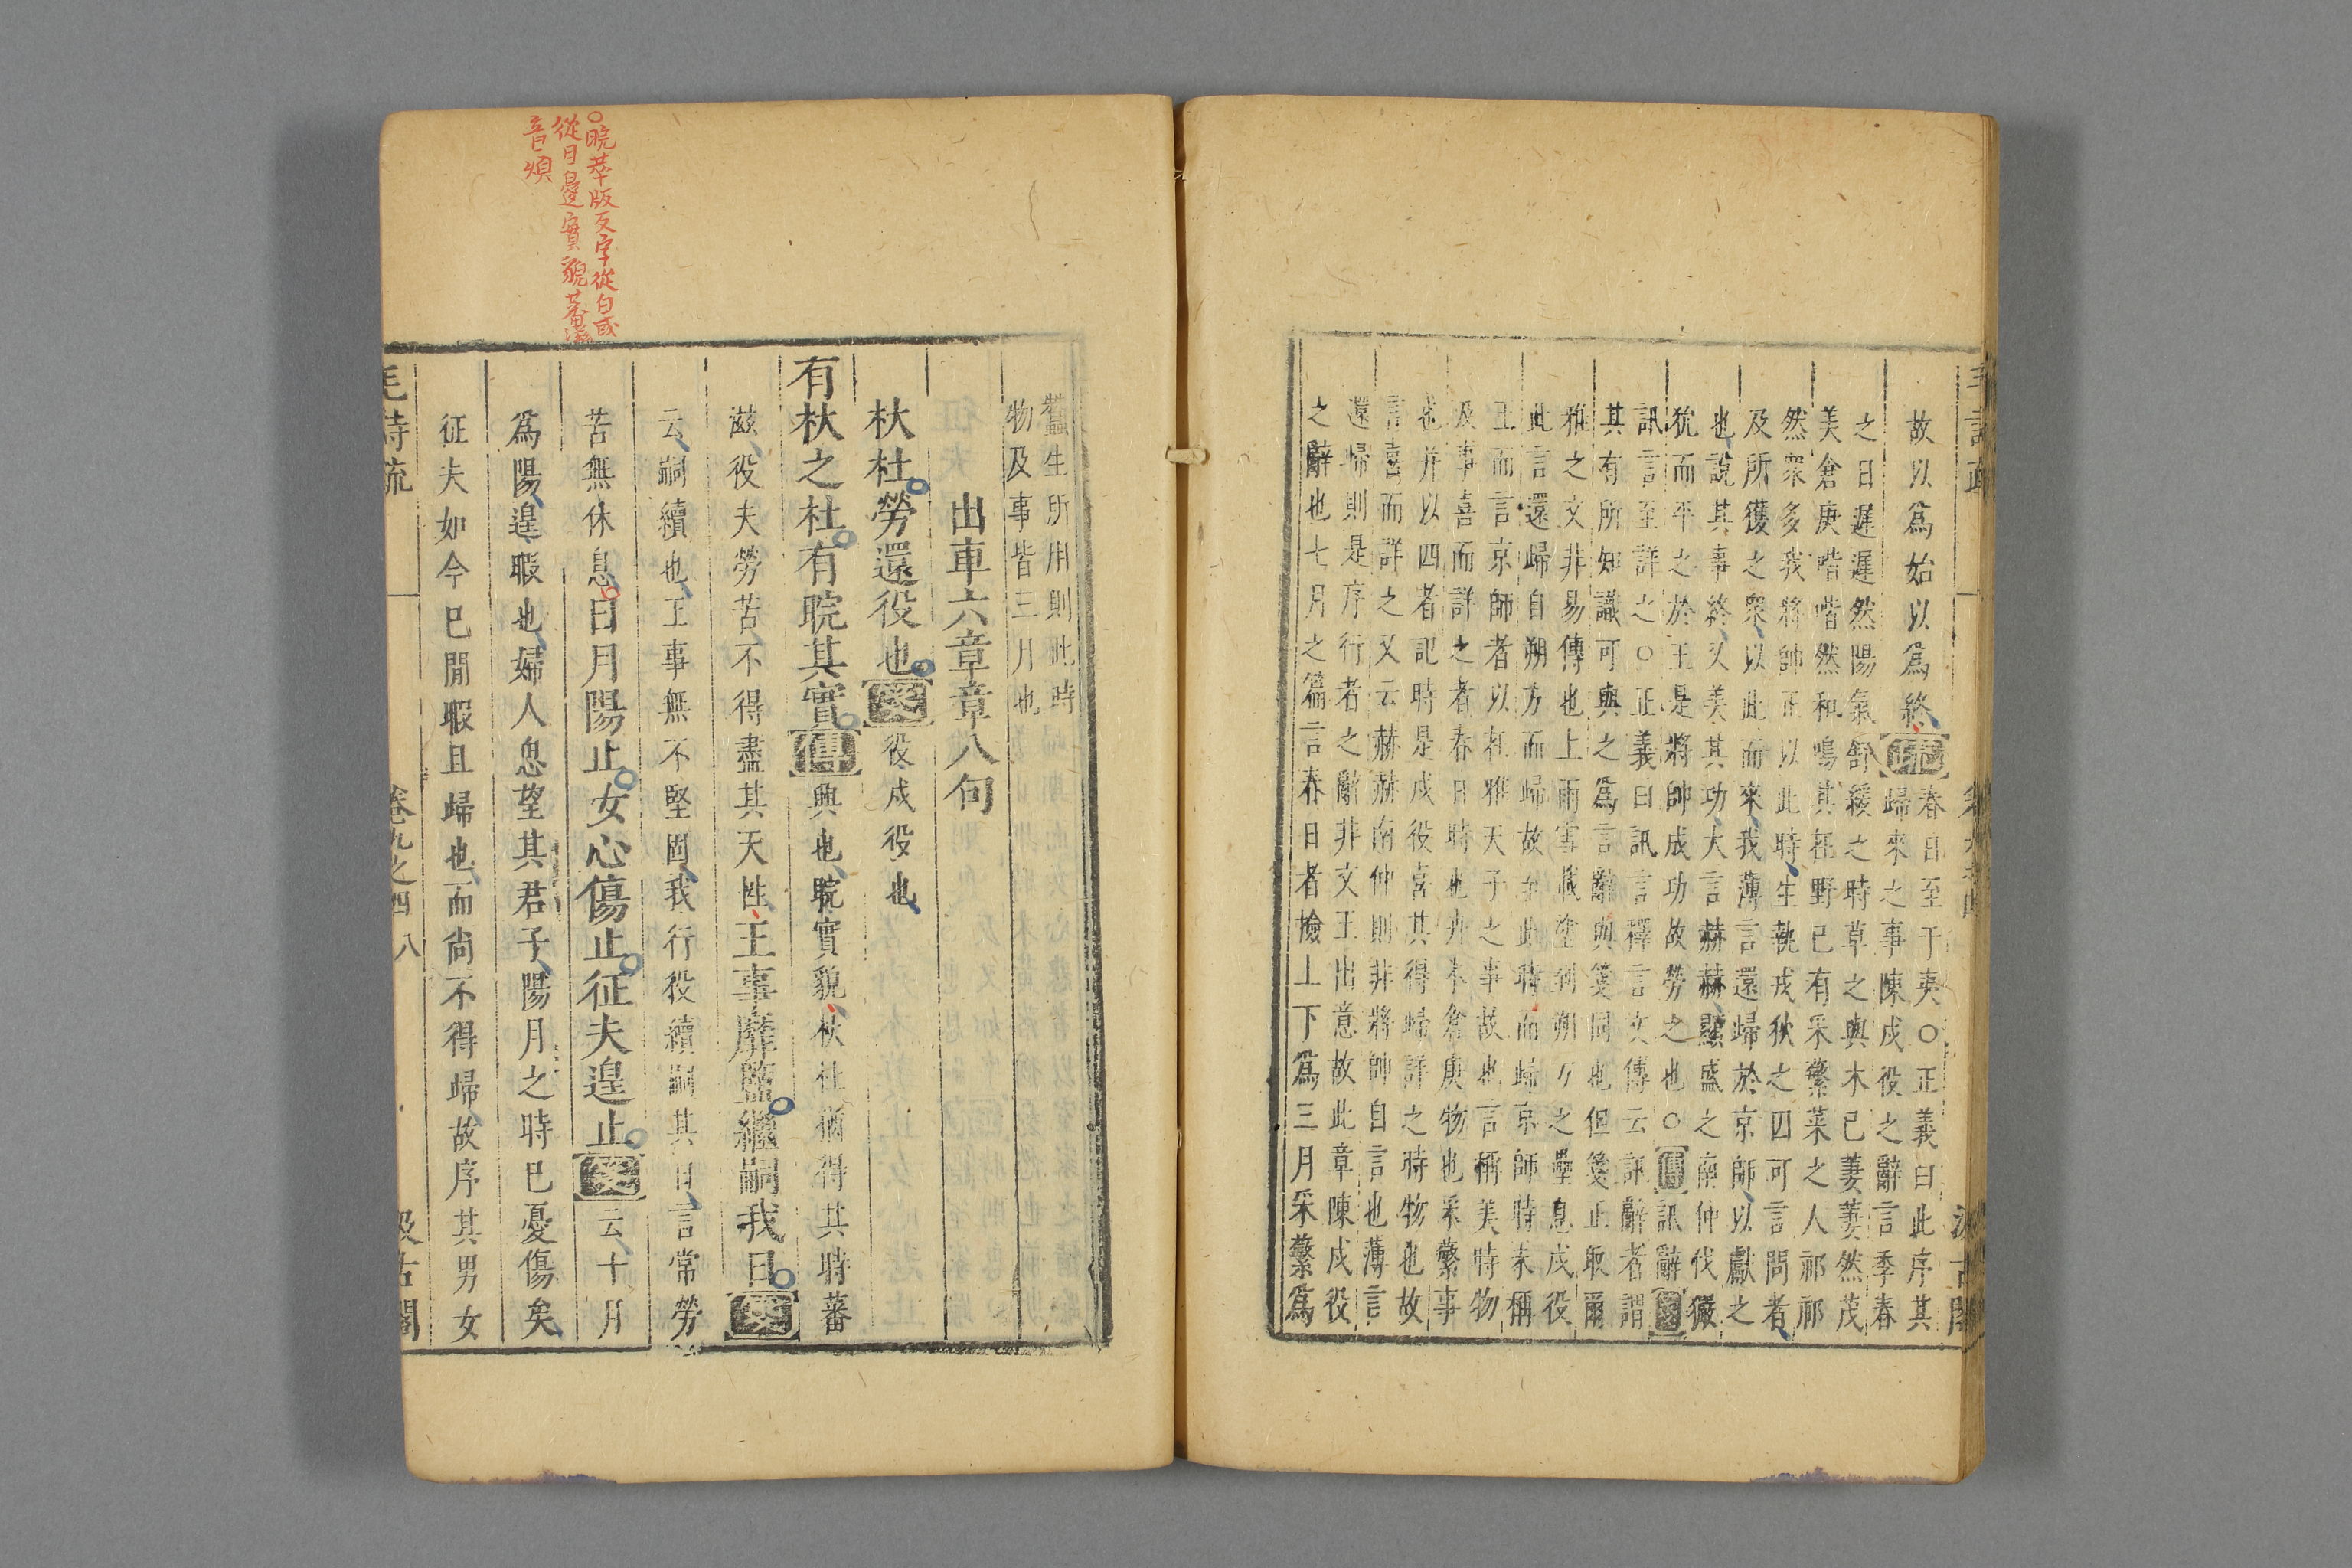 故以爲始以爲終疏春日至于夷○正義曰此序其
歸來之事陳戍役之辭言季春
之日遲遲然陽氣舒緩之時草之與木已萋萋然茂
美倉庚喈喈然和鳴其在野已有采蘩菜之人祁祁
然衆多我將帥正以此時生執戎狄之四可言問者
及所獲之衆以此而來我薄言還歸於京師以獻之
也說其事終又美其功大言赫赫顯盛之南仲伐玁
狁而平之於王是將帥成功故勞之也○傳訊辭箋
訊言至詳之○正義曰訊言釋言文傳云訊辭者謂
其有所知識可與之爲言辭與箋同也但箋正取爾
雅之文非易傳也上雨雪載塗到朔方之壘息戍役
此言還歸自朔方而歸故至此時而歸京師時未稱
王而言京師者以在雅天子之事故也言稱美時物
及事喜而詳之者春日時也卉木倉庚物也采蘩事
也并以四者記時是戍役喜其得歸詳之時物也故
言喜而詳之又云赫赫南仲則非將帥自言也薄言
還歸則是序行者之辭非文王出意故此章陳戍役
之辭也七月之篇言春日者檢上下爲三月采蘩爲
蠶生所用則此時
物及事皆三月也
出車六章章八句
杕杜勞還役也箋役戍役也
有杕之杜有睆其實傳興也睆實貌杕杜猶得其時蕃
滋役夫勞苦不得盡其天性王事靡盬繼嗣我日箋
云嗣續也王事無不堅固我行役續嗣其日言常勞
苦無休息日月陽止女心傷止征夫遑止箋云十月
爲陽遑暇也婦人思望其君子陽月之時已憂傷矣
征夫如今已閒暇且歸也而尚不得歸故序其男女
毛詩疏 卷九之四 八 汲古閣
○睆華版反字從白或
從日邊實貌蕃滋
音煩